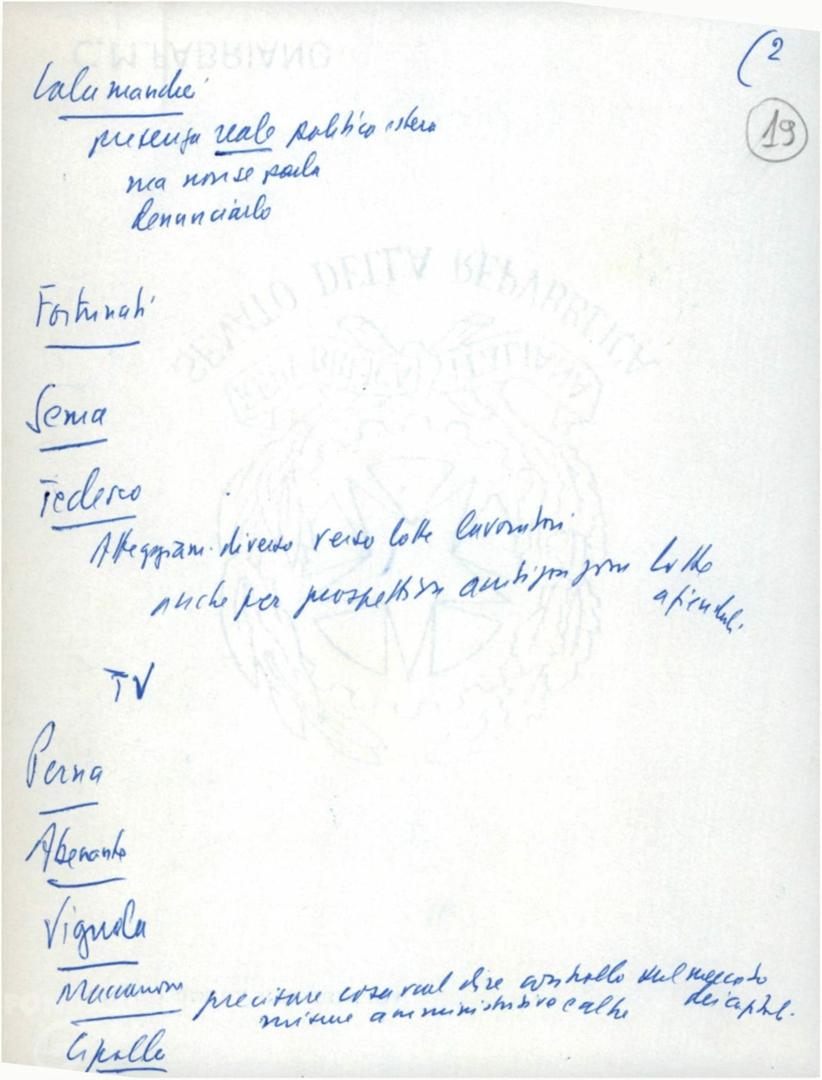 (2
19
Calamandrei
presenza reale politica estera
ma non se parla
denunciarlo
Fortunati
Sema
Tedesco
Atteggiam. diverso verso lotte lavoratori
anche per prospettiva lotte
aziendal.
TV
Perna
Abenante
Vignola
Maccarrone precisare cosa vuol dire controllo sul mercato
dei capital.
misure amministrative e altre
Cipolla
C.M.FABRIANO
SENATO DELLA REPVBBLICA
REPVBBLICA ITALIANA